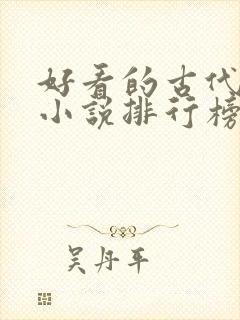 好看的古代
小说排行榜
吴丹平